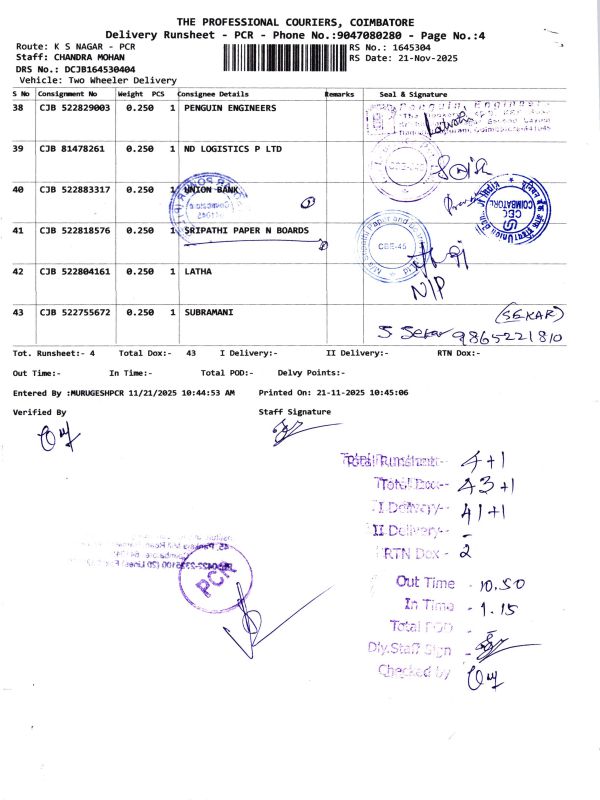 THE PROFESSIONAL COURIERS, COIMBATORE
Delivery Runsheet - PCR - Phone No.:9047080280 - Page No.:4
Route: K S NAGAR - PCR RS No.: 1645304
Staff: CHANDRA MOHAN RS Date: 21-Nov-2025
DRS No.: DCJB164530404
Vehicle: Two Wheeler Delivery
S No Consignment No Weight PCS Consignee Details Remarks Seal & Signature
38 CJB 522829003 0.250 1 PENGUIN ENGINEERS
Penguin Engineers
39 CJB 81478261 0.250 1 ND LOGISTICS P LTD
CBE-45
40 CJB 522883317 0.250 1 UNION BANK
CEC COIMBATORE
41 CJB 522818576 0.250 1 SRIPATHI PAPER N BOARDS
CBE-45
42 CJB 522804161 0.250 1 LATHA
N/P
43 CJB 522755672 0.250 1 SUBRAMANI
(SEKAR)
S Sekar 9865221810
Tot. Runsheet:- 4 Total Dox:- 43 I Delivery:- II Delivery:- RTN Dox:-
Out Time:- In Time:- Total POD:- Delvy Points:-
Entered By :MURUGESHPCR 11/21/2025 10:44:53 AM Printed On: 21-11-2025 10:45:06
Verified By Staff Signature
Total Runsheet-- 4+1
Total Dox-- 43+1
I Delivery-- 41+1
II Delivery-- -
RTN Dox - 2
PCR
Out Time - 10.50
In Time - 1.15
Total POD -
Dly.Staff Sign -
Checked by